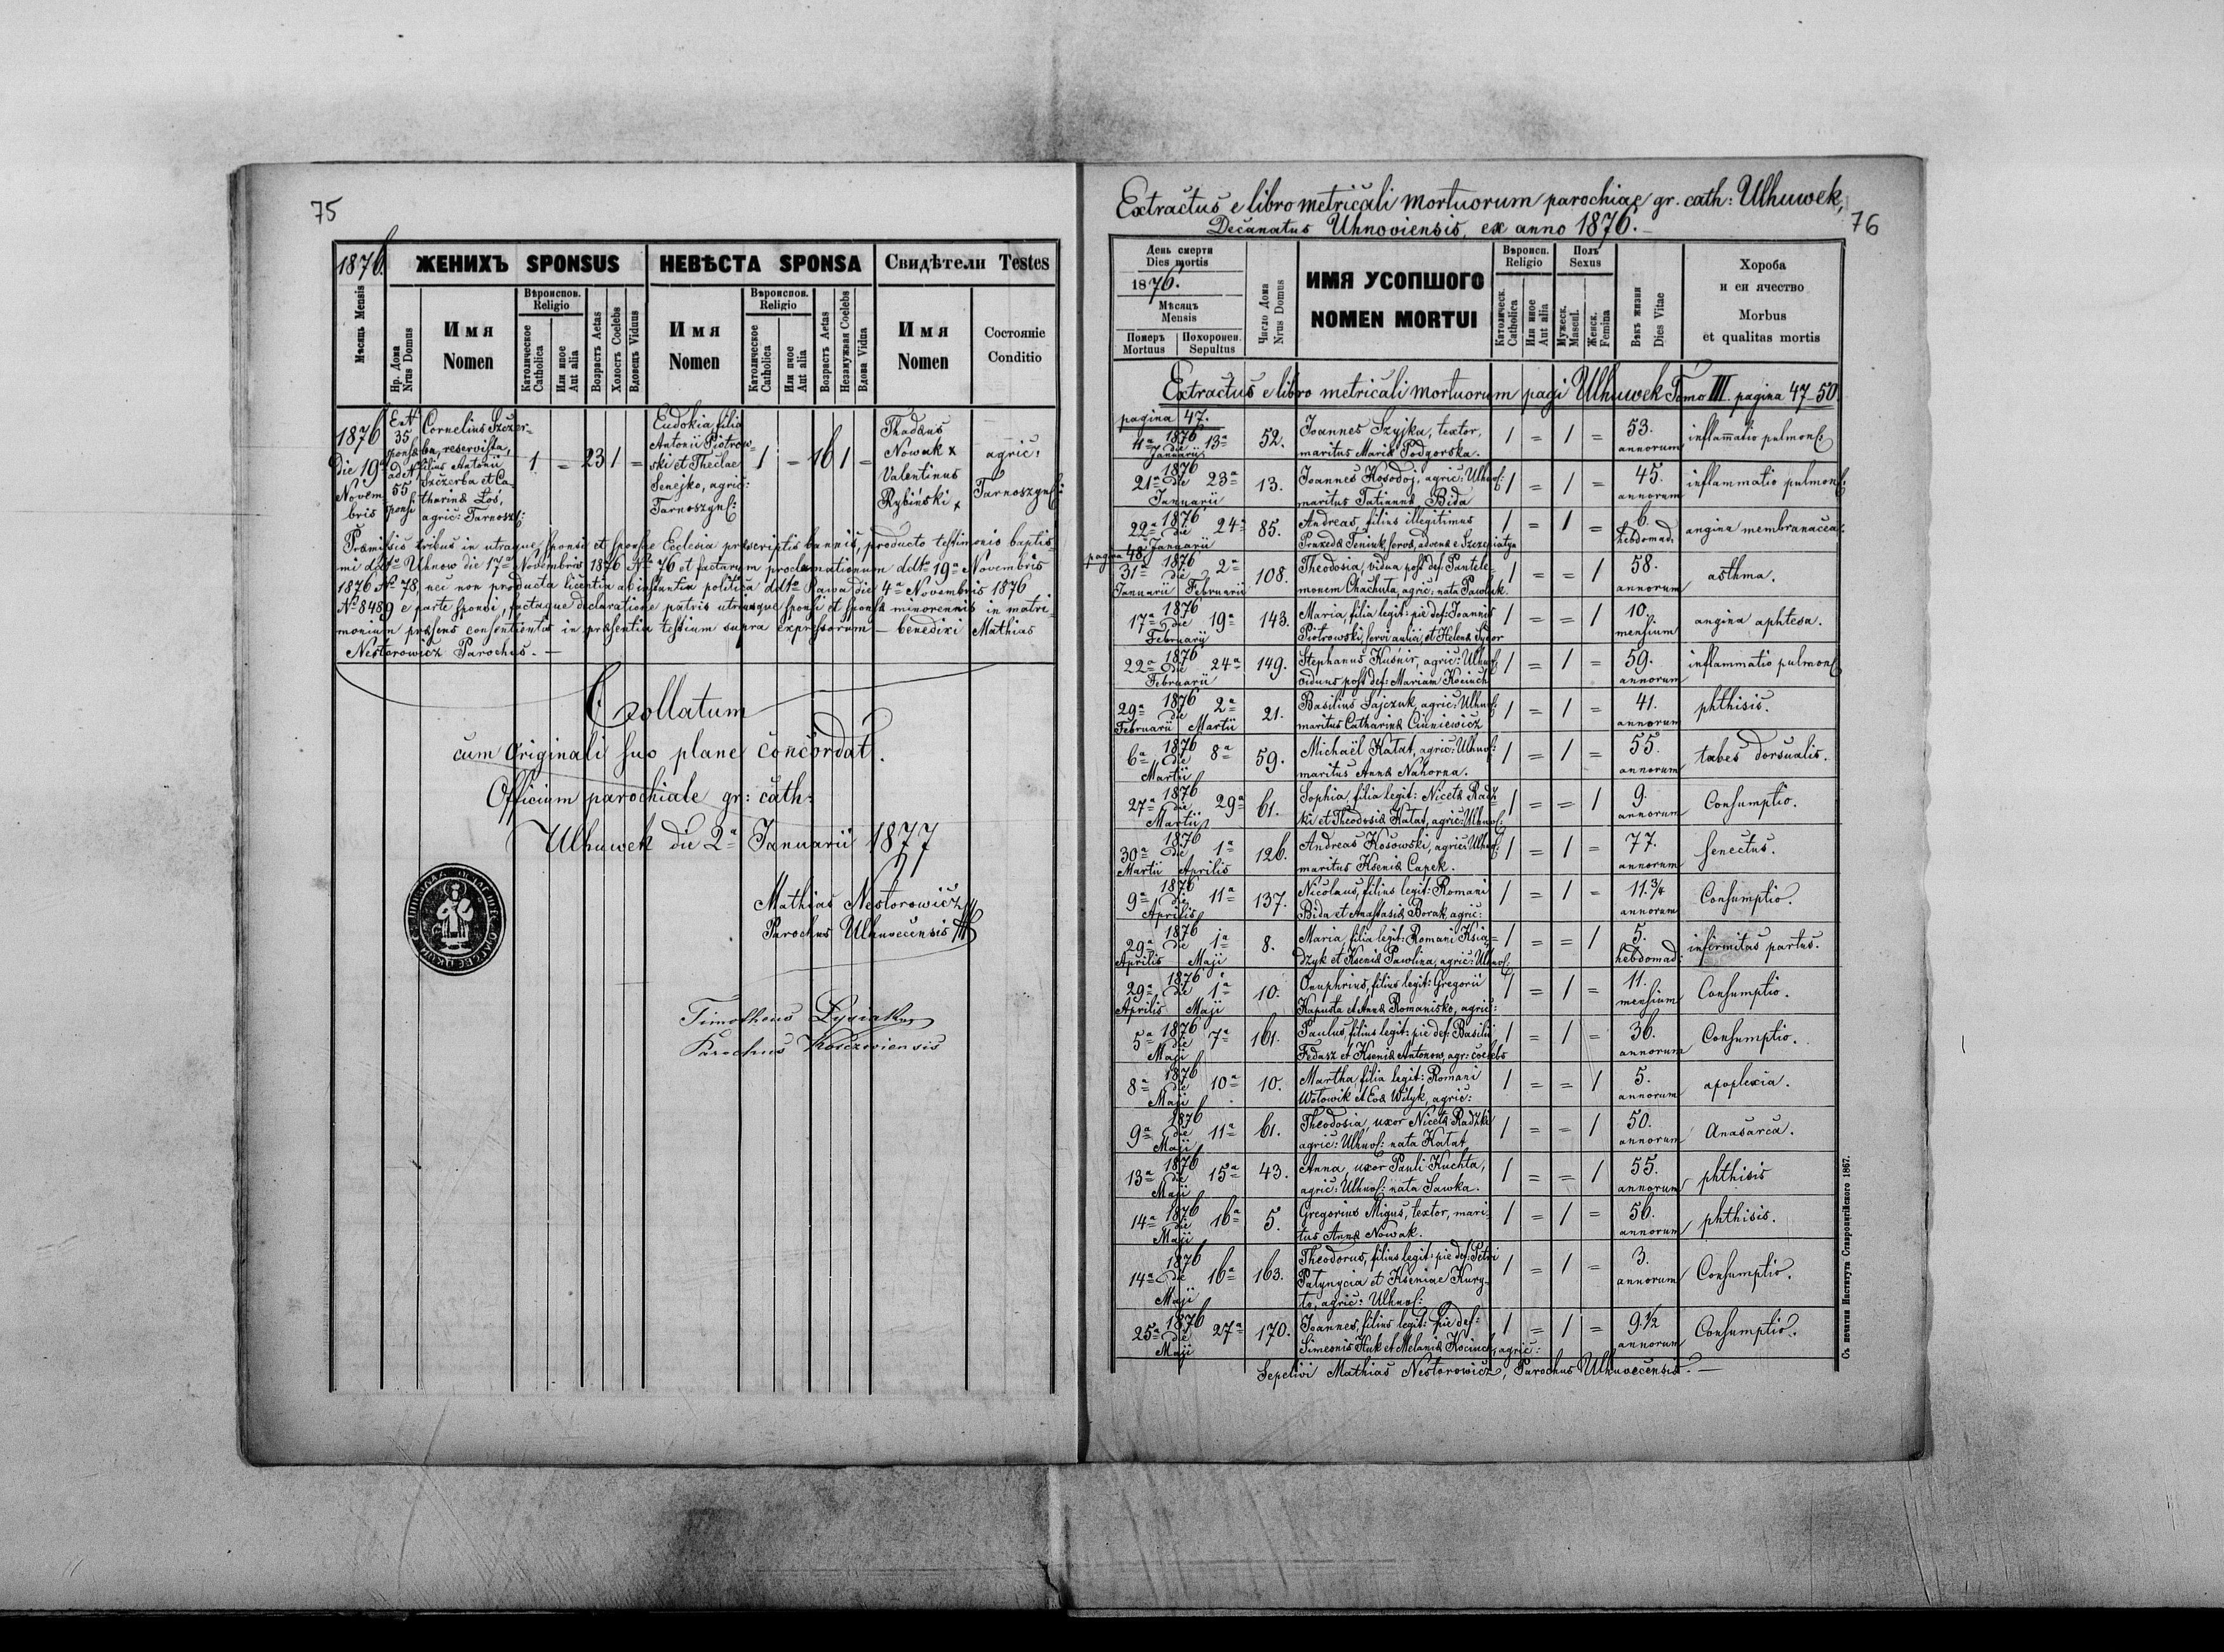 75
1876.
ЖЕНИХЪ SPONSUS
НЕВѢСТА SPONSA
Свидѣтели Testes
Мѣсяць Mensis
Нр. Дома
Nrus Domus
Имя
Nomen
Вѣроиспов.
Religio
Католическое
Catholica
Или иное
Aut alia
Возрастъ Aetas
Холостъ Coelebs
Вдовецъ Viduus
Имя
Nomen
Вѣроиспов.
Religio
Католическое
Catholica
Или иное
Aut alia
Возрастъ Aetas
Незамужная Coelebs
Вдова Vidua
Имя
Nomen
Состояніе
Conditio
1876
die 19ª
Novem
bris
Ex N
35
sponsæ
ad N
55
sponsi
Cornelius Szczer-
ba, reservista,
filius Antonii
Szczerba et Ca-
tharinæ Łoś,
agric: Tarnosz:
1 = 23 1 =
Eudokia, filia
Antonii Piotrow-
ski et Theclae
Senejko, agric:
Tarnoszyn:
1 = 16 1 =
Thadæus
Nowak x
Valentinus
Rybiński x
agric:
Tarnoszyn:
Præmissis tribus in utraque, sponsi et sponsae Ecclesia præscriptis bannis, producto testimonio baptis-
mi ddto Uhnow die 17ª Novembris 1876 No 76 et factarum proclamationum ddto 19ª Novembris
1876 No 78, nec non producta licentia ab instantia politica ddto Rawa die 4ª Novembris 1876
No 8489 e parte sponsi, factaque declaratione patris utriusque sponsi et sponsæ minorennis in matri-
monium præsens consentientis in præsentia testium supra expressorum - benedixi Mathias
Nestorowicz Parochus. —
Collatum
cum Originali suo plane concordat.
Officium parochiale gr: cath:
Ulhuwek die 2ª Januarii 1877
Mathias Nestorowicz
Parochus Ulhuvecensis
Timotheus
Parochus
76
Extractus e libro metricali mortuorum parochiae gr. cath: Ulhuwek,
Decanatus Uhnoviensis, ex anno 1876. —
День смерти
Dies mortis
1876.
Мѣсяць
Mensis
Померъ
Mortuus
Похоронен.
Sepultus
Число Дома
Nrus Domus
ИМЯ УСОПШОГО
NOMEN MORTUI
Вѣроисп.
Religio
Католическ.
Catholica
Или иное
Aut alia
Полъ
Sexus
Мужеск.
Mascul.
Женск.
Femina
Вѣкъ жизни
Dies Vitae
Хороба
и еи ячество
Morbus
et qualitas mortis
Extractus e libro metricali mortuorum pagi Ulhuwek Tomo III. pagina 47-50.
pagina 47.
4ª 1876 die 13ª Januarii 52. Joannes Szyjka, textor, 1 = 1 = 53. annorum inflammatio pulmon:
maritus Mariæ Podgorska.
21ª 1876 die 23ª Januarii 13. Joannes Kosodoj, agric: Ulhuv: 1 = 1 = 45. annorum inflammatio pulmon:
maritus Tatiannæ Bida
22ª 1876 die 24ª Januarii 85. Andreas, filius illegitimus 1 = 1 = 6. hebdomad: angina membranacea.
Praxedæ
pagina 48.
31ª Januarii 1876 die 2ª Februarii 108. Theodosia, vidua post def: Pantele- 1 = = 1 58. annorum asthma.
monem Chachuta, agric: nata Pawluk.
17ª 1876 die 19ª Februarii 143. Maria, filia legit: pie def: Joannis 1 = = 1 10. mensium angina aphtosa.
Piotrowski, servi aulici, et Helenæ Sydor
22ª 1876 die 24ª Februarii 149. Stephanus Kuśnir, agric: Ulhuv: 1 = 1 = 59. annorum inflammatio pulmon:
viduus post def: Mariam Kociuch
29ª Februarii 1876 die 2ª Martii 21. Basilius Sajczuk, agric: Ulhuv: 1 = 1 = 41. annorum phthisis.
maritus Catharinæ Ciuniewicz
6ª 1876 die 8ª Martii 59. Michaël Katat, agric: Ulhuv: 1 = 1 = 55. annorum tabes dorsualis.
maritus Annæ Nahorna.
27ª 1876 die 29ª Martii 61. Sophia, filia legit: Nicetæ Radz- 1 = = 1 9. annorum Consumptio.
ki et Theodosiæ Katat, agric: Ulhuv:
30ª Martii 1876 die 1ª Aprilis 126. Andreas Kosowski, agric: Ulhuv: 1 = 1 = 77. annorum senectus.
maritus Kseniæ Capek.
9ª 1876 die 11ª Aprilis 137. Nicolaus, filius legit: Romani 1 = 1 = 11.¾ annorum Consumptio.
Bida et Anastasiæ Borak, agric:
29ª Aprilis 1876 die 1ª Maji 8. Maria, filia legit: Romani Ksią- 1 = = 1 5. hebdomad: infirmitas partus.
dzyk et Kseniæ Pawlina, agric: Ulhuv:
29ª Aprilis 1876 die 1ª Maji 10. Onuphrius, filius legit: Gregorii 1 = 1 = 11. mensium Consumptio.
Kapusta et Annæ Romanisko, agric:
5ª 1876 die 7ª Maji 161. Paulus, filius legit: pie def: Basilii 1 = 1 = 36. annorum Consumptio.
Fedasz et Kseniæ Antonow, agr: coelebs
8ª 1876 die 10ª Maji 10. Martha, filia legit: Romani 1 = = 1 5. annorum apoplexia.
Wołowik et Evæ Wilyk, agric:
9ª 1876 die 11ª Maji 61. Theodosia, uxor Nicetæ Radzki 1 = = 1 50. annorum Anasarca.
agric: Ulhuv: nata Katat
13ª 1876 die 15ª Maji 43. Anna, uxor Pauli Kuchta, 1 = = 1 55. annorum phthisis
agric: Ulhuv: nata Sawka.
14ª 1876 die 16ª Maji 5. Gregorius Migus, textor, mari- 1 = 1 = 56. annorum phthisis.
tus Annæ Nowak.
14ª 1876 die 16ª Maji 163. Theodorus, filius legit: pie def: Petri 1 = 1 = 3. annorum Consumptio.
Patynycia et Kseniae Kury-
ło, agric: Ulhuv:
25ª 1876 die 27ª Maji 170. Joannes, filius legit: pie def: 1 = 1 = 9.½ annorum Consumptio.
Simeonis Kuk et Melaniæ Kociuch, agric:
Sepelivi Mathias Nestorowicz, Parochus Ulhuvecensis. —
Съ печатни Института Ставропигійского 1867.